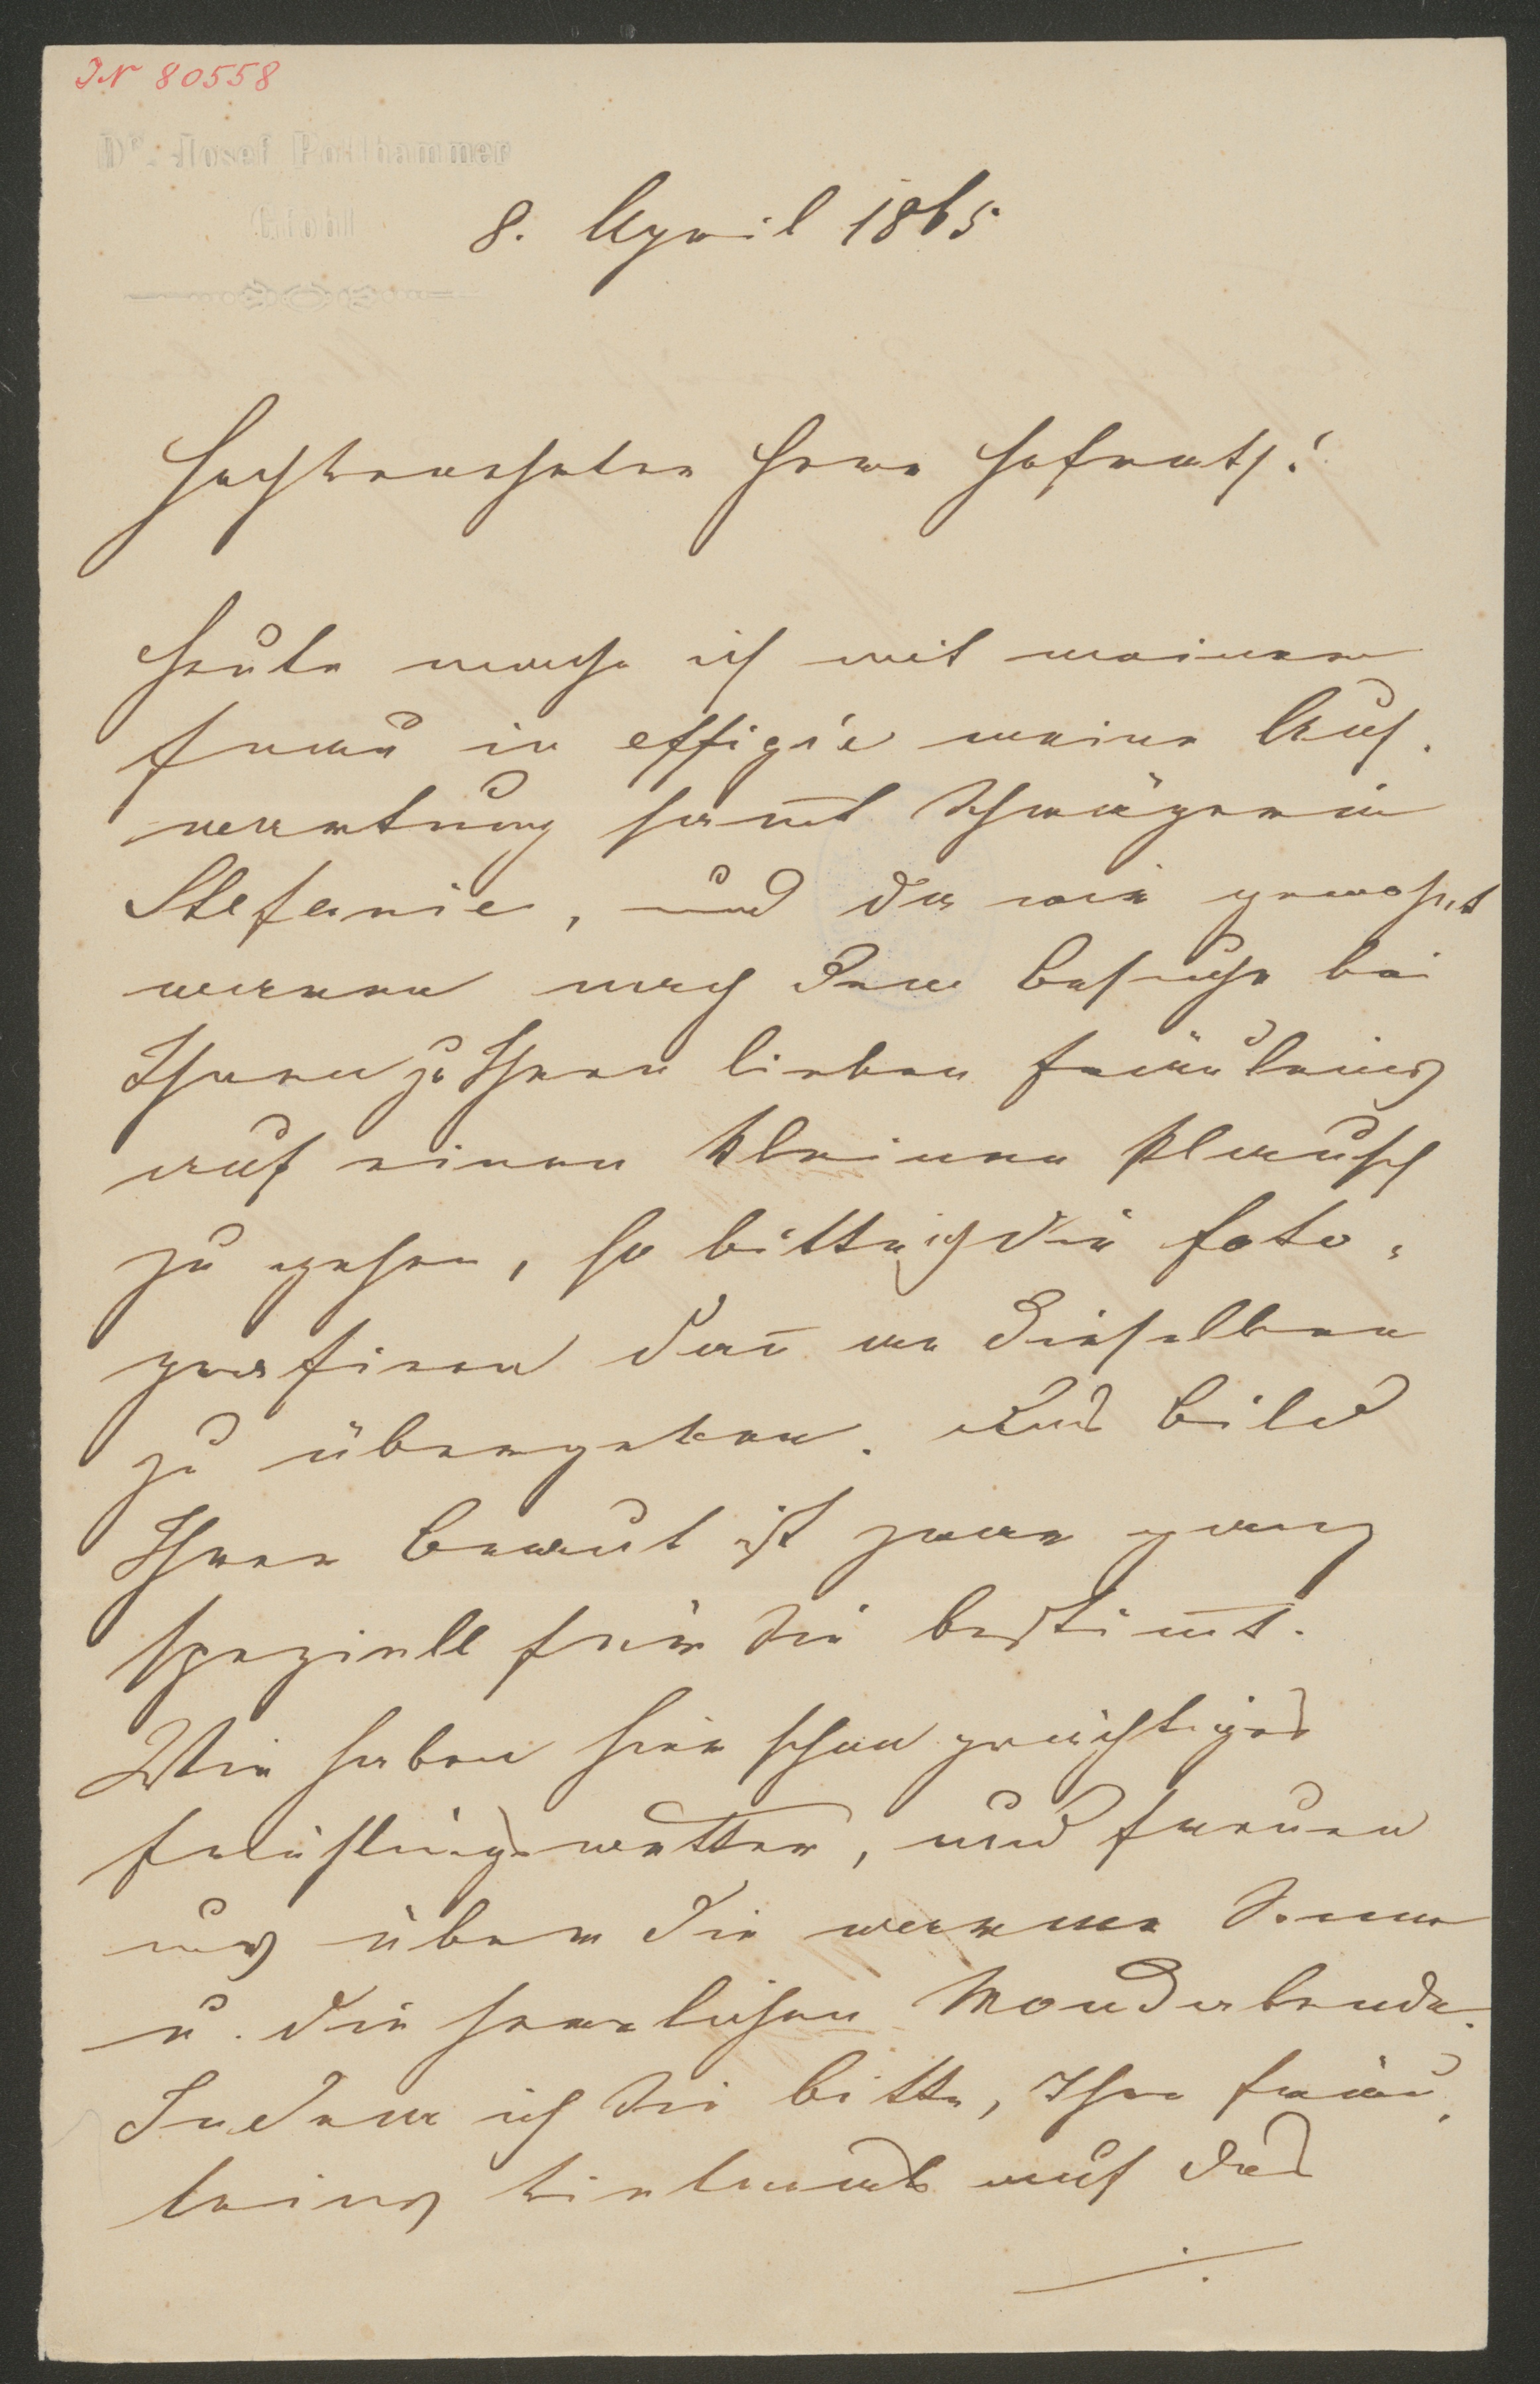 IN 80558
Dr. Josef Pollhammer
Gföhl
8. April 1865
Hochverehrter Herr Hofrath!
Heute mache ich mit meiner
Frau in effigie meine Auf-
wartung samt Schwägerin
Stefanie, und da wir gewohnt
waren nach dem Besuche bei
Ihnen zu Ihren lieben Fräuleins
auf einen kleinen Plausch
zu gehen, so bitte ich die Foto-
grafien dann an dieselben
zu übergeben. Das Bild
Ihrer Braut ist zwar ganz
speziell für Sie bestimt.
Wir haben hier schon prächtiges
Frühlingswetter, und freuen
uns über die warme Sonne
u. die herrlichen Mondabende.
Indem ich Sie bitte, Ihre Fräu-
leins tielmals auf das